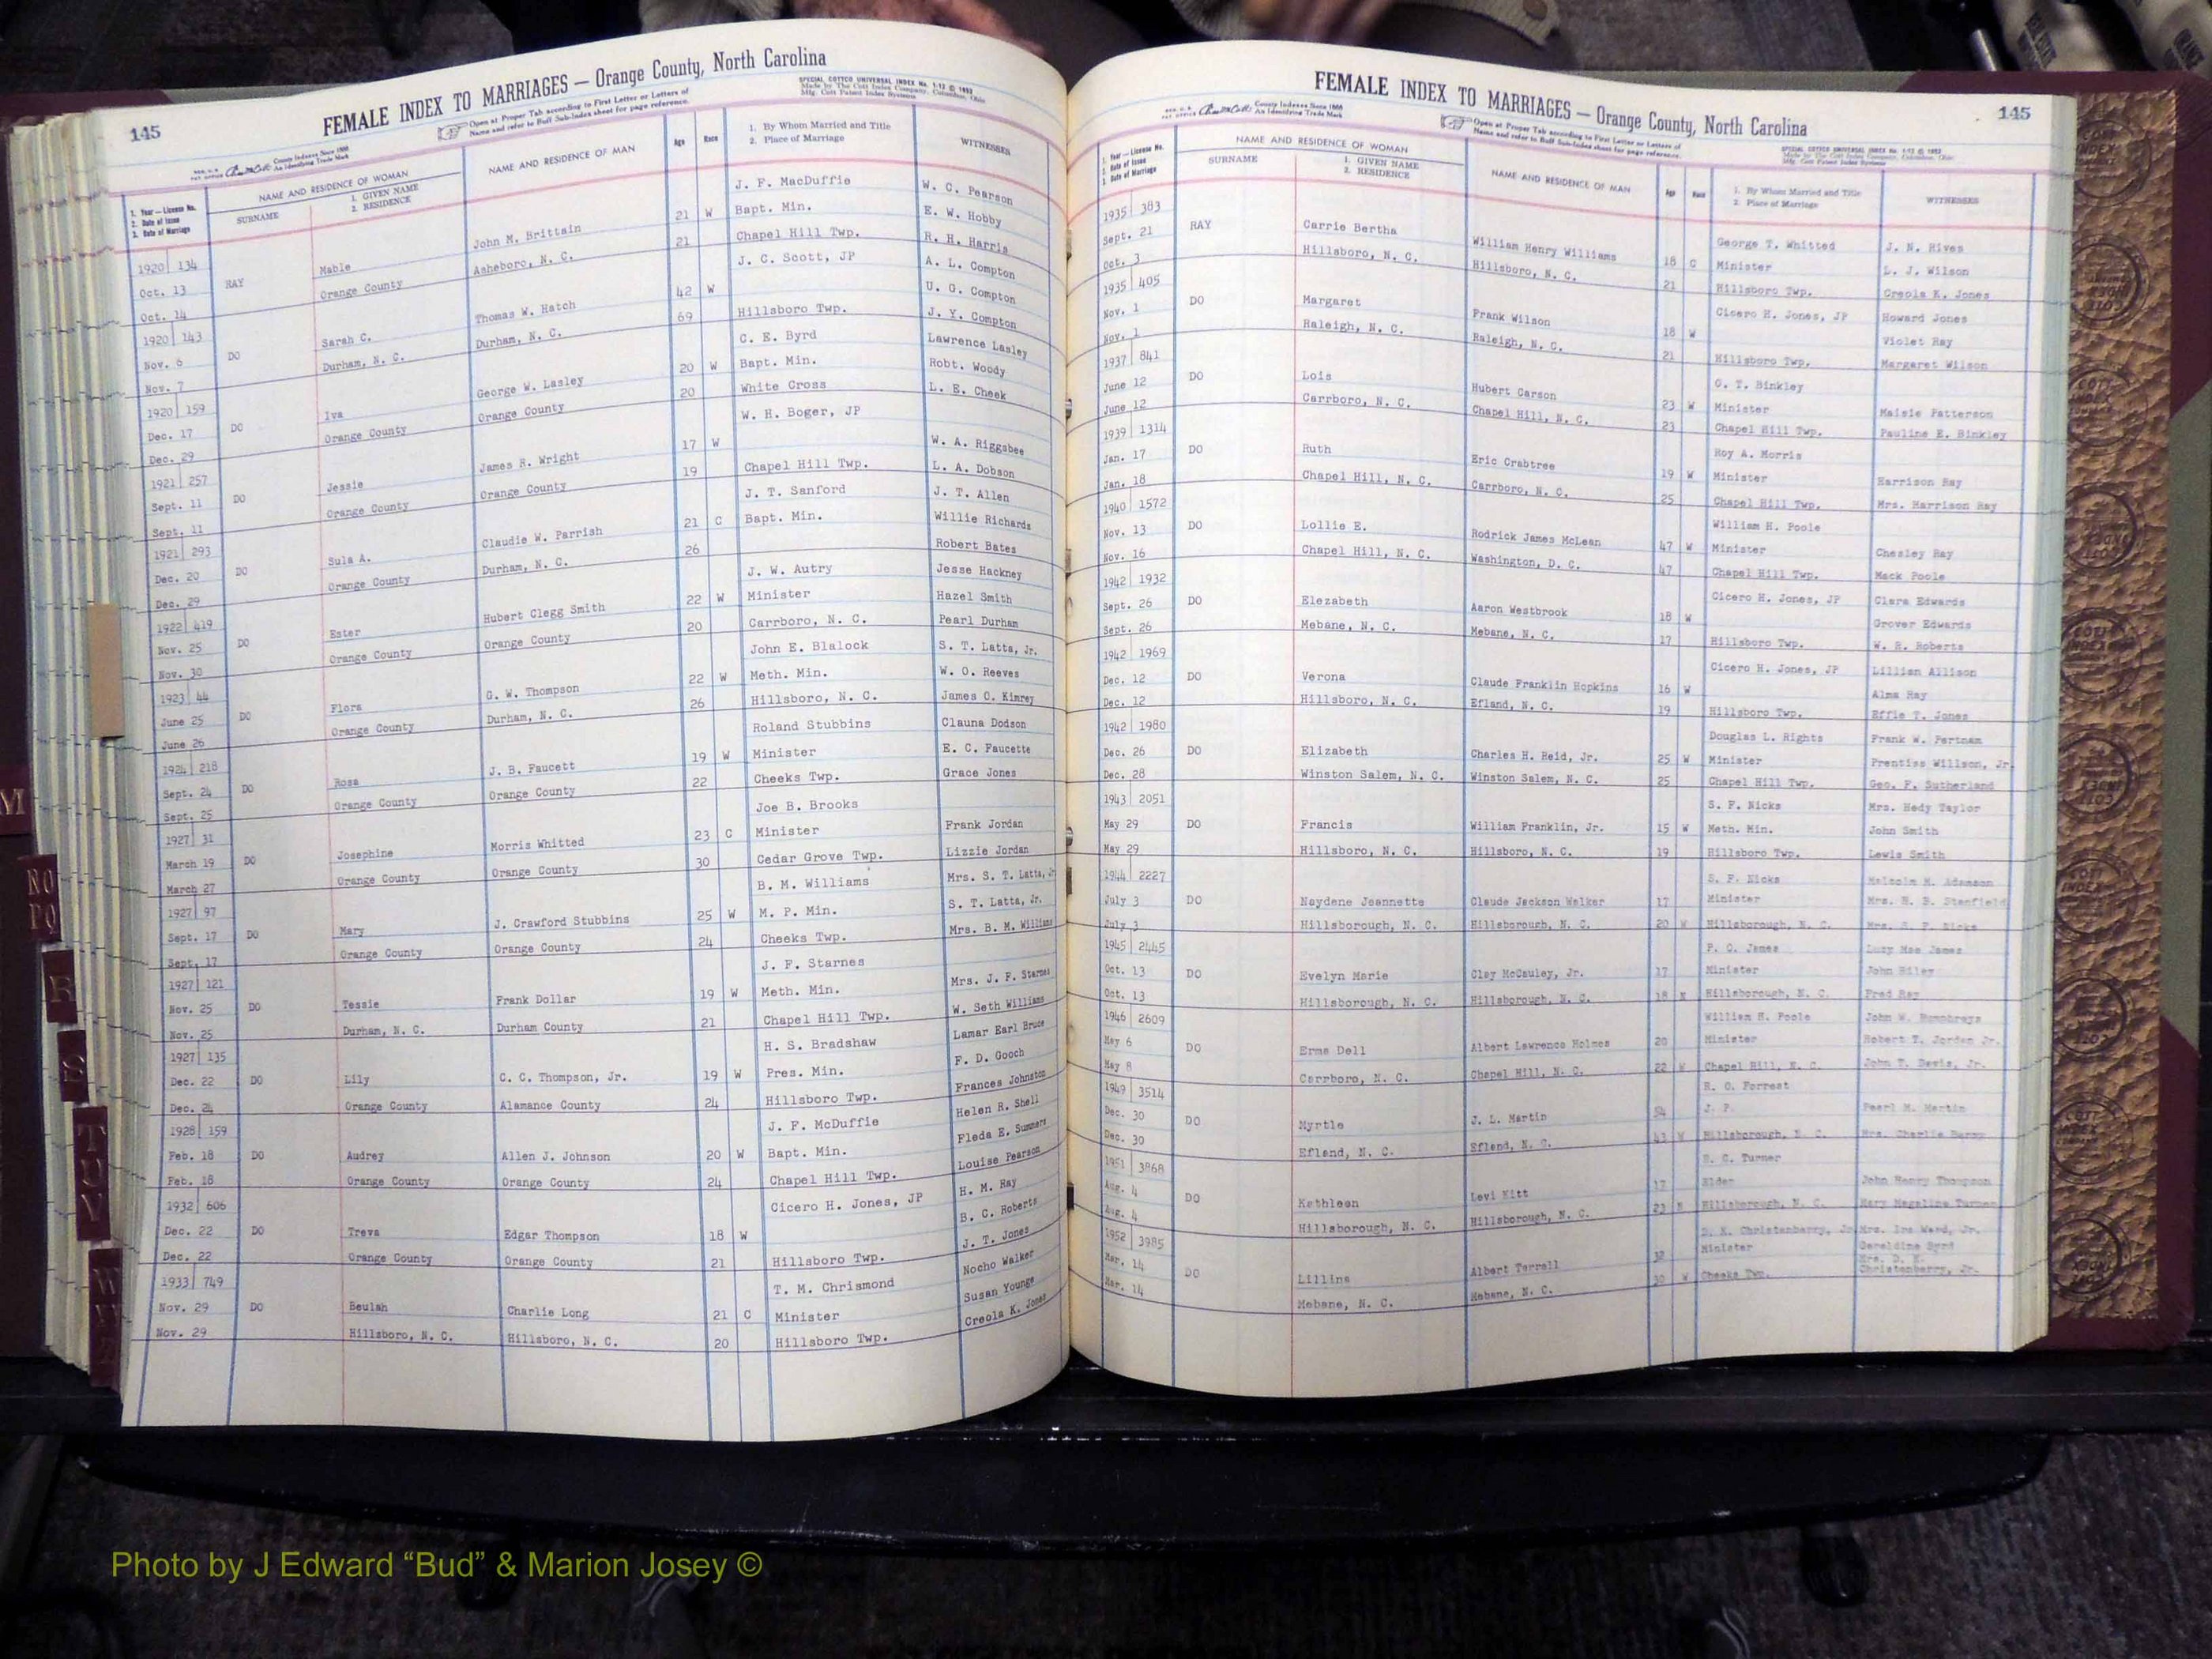 145
FEMALE INDEX TO MARRIAGES — Orange County, North Carolina
Open at Proper Tab according to First Letter or Letters of
Name and refer to Buff Sub-Index sheet for page reference.
SPECIAL COTTCO UNIVERSAL INDEX No. 1-12 © 1952
Made by The Cott Index Company, Columbus, Ohio
Mfg. Cott Patent Index Systems
County Indexes Since 1888
An Identifying Trade Mark
1. Year — License No.
2. Date of Issue
3. Date of Marriage
NAME AND RESIDENCE OF WOMAN
SURNAME
1. GIVEN NAME
2. RESIDENCE
NAME AND RESIDENCE OF MAN
Age
Race
1. By Whom Married and Title
2. Place of Marriage
WITNESSES
1920 134 J. F. MacDuffie W. C. Pearson
Oct. 13 RAY Mable John M. Brittain 21 W Bapt. Min. E. W. Hobby
Oct. 14 Orange County Asheboro, N. C. 21 Chapel Hill Twp. R. H. Harris
1920 143 J. C. Scott, JP A. L. Compton
Nov. 6 DO Sarah C. Thomas W. Hatch 42 W U. G. Compton
Nov. 7 Durham, N. C. Durham, N. C. 69 Hillsboro Twp. J. Y. Compton
1920 159 C. E. Byrd Lawrence Lasley
Dec. 17 DO Iva George W. Lasley 20 W Bapt. Min. Robt. Woody
Dec. 29 Orange County Orange County 20 White Cross L. E. Cheek
1921 257 W. H. Boger, JP
Sept. 11 DO Jessie James R. Wright 17 W W. A. Riggsbee
Sept. 11 Orange County Orange County 19 Chapel Hill Twp. L. A. Dobson
1921 293 J. T. Sanford J. T. Allen
Dec. 20 DO Sula A. Claudie W. Parrish 21 C Bapt. Min. Willie Richards
Dec. 29 Orange County Durham, N. C. 26 Robert Bates
1922 419 J. W. Autry Jesse Hackney
Nov. 25 DO Ester Hubert Clegg Smith 22 W Minister Hazel Smith
Nov. 30 Orange County Orange County 20 Carrboro, N. C. Pearl Durham
1923 44 John E. Blalock S. T. Latta, Jr.
June 25 DO Flora G. W. Thompson 22 W Meth. Min. W. O. Reeves
June 26 Orange County Durham, N. C. 26 Hillsboro, N. C. James O. Kimrey
1924 218 Roland Stubbins Clauna Dodson
Sept. 24 DO Rosa J. B. Faucett 19 W Minister E. C. Faucette
Sept. 25 Orange County Orange County 22 Cheeks Twp. Grace Jones
1927 31 Joe B. Brooks
March 19 DO Josephine Morris Whitted 23 C Minister Frank Jordan
March 27 Orange County Orange County 30 Cedar Grove Twp. Lizzie Jordan
1927 97 B. M. Williams Mrs. S. T. Latta, Jr
Sept. 17 DO Mary J. Crawford Stubbins 25 W M. P. Min. S. T. Latta, Jr.
Sept. 17 Orange County Orange County 24 Cheeks Twp. Mrs. B. M. Williams
1927 121 J. F. Starnes
Nov. 25 DO Tessie Frank Dollar 19 W Meth. Min. Mrs. J. F. Starnes
Nov. 25 Durham, N. C. Durham County 21 Chapel Hill Twp. W. Seth Williams
1927 135 H. S. Bradshaw Lamar Earl Bruce
Dec. 22 DO Lily C. C. Thompson, Jr. 19 W Pres. Min. F. D. Gooch
Dec. 24 Orange County Alamance County 24 Hillsboro Twp. Frances Johnston
1928 159 J. F. McDuffie Helen R. Shell
Feb. 18 DO Audrey Allen J. Johnson 20 W Bapt. Min. Fleda E. Summers
Feb. 18 Orange County Orange County 24 Chapel Hill Twp. Louise Pearson
1932 606 Cicero H. Jones, JP H. M. Ray
Dec. 22 DO Treva Edgar Thompson 18 W B. C. Roberts
Dec. 22 Orange County Orange County 21 Hillsboro Twp. J. T. Jones
1933 749 T. M. Chrismond Nocho Walker
Nov. 29 DO Beulah Charlie Long 21 C Minister Susan Younge
Nov. 29 Hillsboro, N. C. Hillsboro, N. C. 20 Hillsboro Twp. Creola K. Jones
145
FEMALE INDEX TO MARRIAGES — Orange County, North Carolina
County Indexes Since 1888
An Identifying Trade Mark
Open at Proper Tab according to First Letter or Letters of
Name and refer to Buff Sub-Index sheet for page reference.
SPECIAL COTTCO UNIVERSAL INDEX No. 1-12 © 1952
Made by The Cott Index Company, Columbus, Ohio
Mfg. Cott Patent Index Systems
1. Year — License No.
2. Date of Issue
3. Date of Marriage
NAME AND RESIDENCE OF WOMAN
SURNAME
1. GIVEN NAME
2. RESIDENCE
NAME AND RESIDENCE OF MAN
Age
Race
1. By Whom Married and Title
2. Place of Marriage
WITNESSES
1935 383 George T. Whitted J. N. Rives
Sept. 21 RAY Carrie Bertha William Henry Williams 18 C Minister L. J. Wilson
Oct. 3 Hillsboro, N. C. Hillsboro, N. C. 21 Hillsboro Twp. Creola K. Jones
1935 405 Cicero H. Jones, JP Howard Jones
Nov. 1 DO Margaret Frank Wilson 18 W Violet Ray
Nov. 1 Raleigh, N. C. Raleigh, N. C. 21 Hillsboro Twp. Margaret Wilson
1937 841 O. T. Binkley
June 12 DO Lois Hubert Carson 23 W Minister Maisie Patterson
June 12 Carrboro, N. C. Chapel Hill, N. C. 23 Chapel Hill Twp. Pauline E. Binkley
1939 1314 Roy A. Morris
Jan. 17 DO Ruth Eric Crabtree 19 W Minister Harrison Ray
Jan. 18 Chapel Hill, N. C. Carrboro, N. C. 25 Chapel Hill Twp. Mrs. Harrison Ray
1940 1572 William H. Poole
Nov. 13 DO Lollie E. Rodrick James McLean 47 W Minister Chesley Ray
Nov. 16 Chapel Hill, N. C. Washington, D. C. 47 Chapel Hill Twp. Mack Poole
1942 1932 Cicero H. Jones, JP Clara Edwards
Sept. 26 DO Elezabeth Aaron Westbrook 18 W Grover Edwards
Sept. 26 Mebane, N. C. Mebane, N. C. 17 Hillsboro Twp. W. R. Roberts
1942 1969 Cicero H. Jones, JP Lillian Allison
Dec. 12 DO Verona Claude Franklin Hopkins 16 W Alma Ray
Dec. 12 Hillsboro, N. C. Efland, N. C. 19 Hillsboro Twp. Effie T. Jones
1942 1980 Douglas L. Rights Frank W.
Dec. 26 DO Elizabeth Charles H. Reid, Jr. 25 W Minister Prentiss Willson, Jr.
Dec. 28 Winston Salem, N. C. Winston Salem, N. C. 25 Chapel Hill Twp. Geo. F. Sutherland
1943 2051 S. F. Nicks Mrs. Hedy Taylor
May 29 DO Francis William Franklin, Jr. 15 W Meth. Min. John Smith
May 29 Hillsboro, N. C. Hillsboro, N. C. 19 Hillsboro Twp. Lewis Smith
1944 2227 S. F. Nicks Malcolm M. Adamson
July 3 DO Naydene Jeannette Claude Jackson Walker 17 Minister Mrs. H. B. Stanfield
July 3 Hillsborough, N. C. Hillsborough, N. C. 20 W Hillsborough, N. C. Mrs. S. F. Nicks
1945 2445 P. O. James Lucy Mae James
Oct. 13 DO Evelyn Marie Clay McCauley, Jr. 17 Minister John Riley
Oct. 13 Hillsborough, N. C. Hillsborough, N. C. 18 N Hillsborough, N. C. Fred Ray
1946 2609 William H. Poole John W. Humphreys
May 6 DO Erma Dell Albert Lawrence Holmes 20 Minister Robert T. Jordan Jr.
May 8 Carrboro, N. C. Chapel Hill, N. C. 22 W Chapel Hill, N. C. John T. Davis, Jr.
1949 3514 R. O. Forrest
Dec. 30 DO Myrtle J. L. Martin 54 J. P. Pearl M. Martin
Dec. 30 Efland, N. C. Efland, N. C. 43 W Hillsborough, N. C. Mrs. Charlie
1951 3868 R. C. Turner
Aug. 4 DO Kathleen Levi Kitt 17 Elder John Henry Thompson
Aug. 4 Hillsborough, N. C. Hillsborough, N. C. 23 N Hillsborough, N. C. Mary Magaline Turner
1952 3985 D. K. Christenberry, Jr Mrs. Ira Ward, Jr.
Mar. 14 DO Lillina Albert Terrell 32 Minister Geraldine Byrd
Mar. 14 Mebane, N. C. Mebane, N. C. 30 W Cheeks Twp. Mrs. D. K. Christenberry, Jr.
M
NO
PQ
R
S
T
UV
W
Photo by J Edward “Bud” & Marion Josey ©